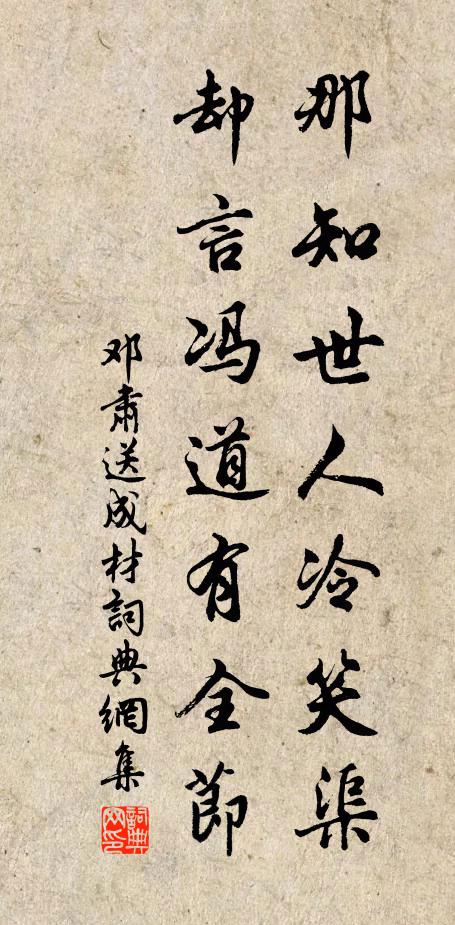 那知世人冷笑渠
却言冯道有全節
邓肅送成材詞典網集
詞典网印